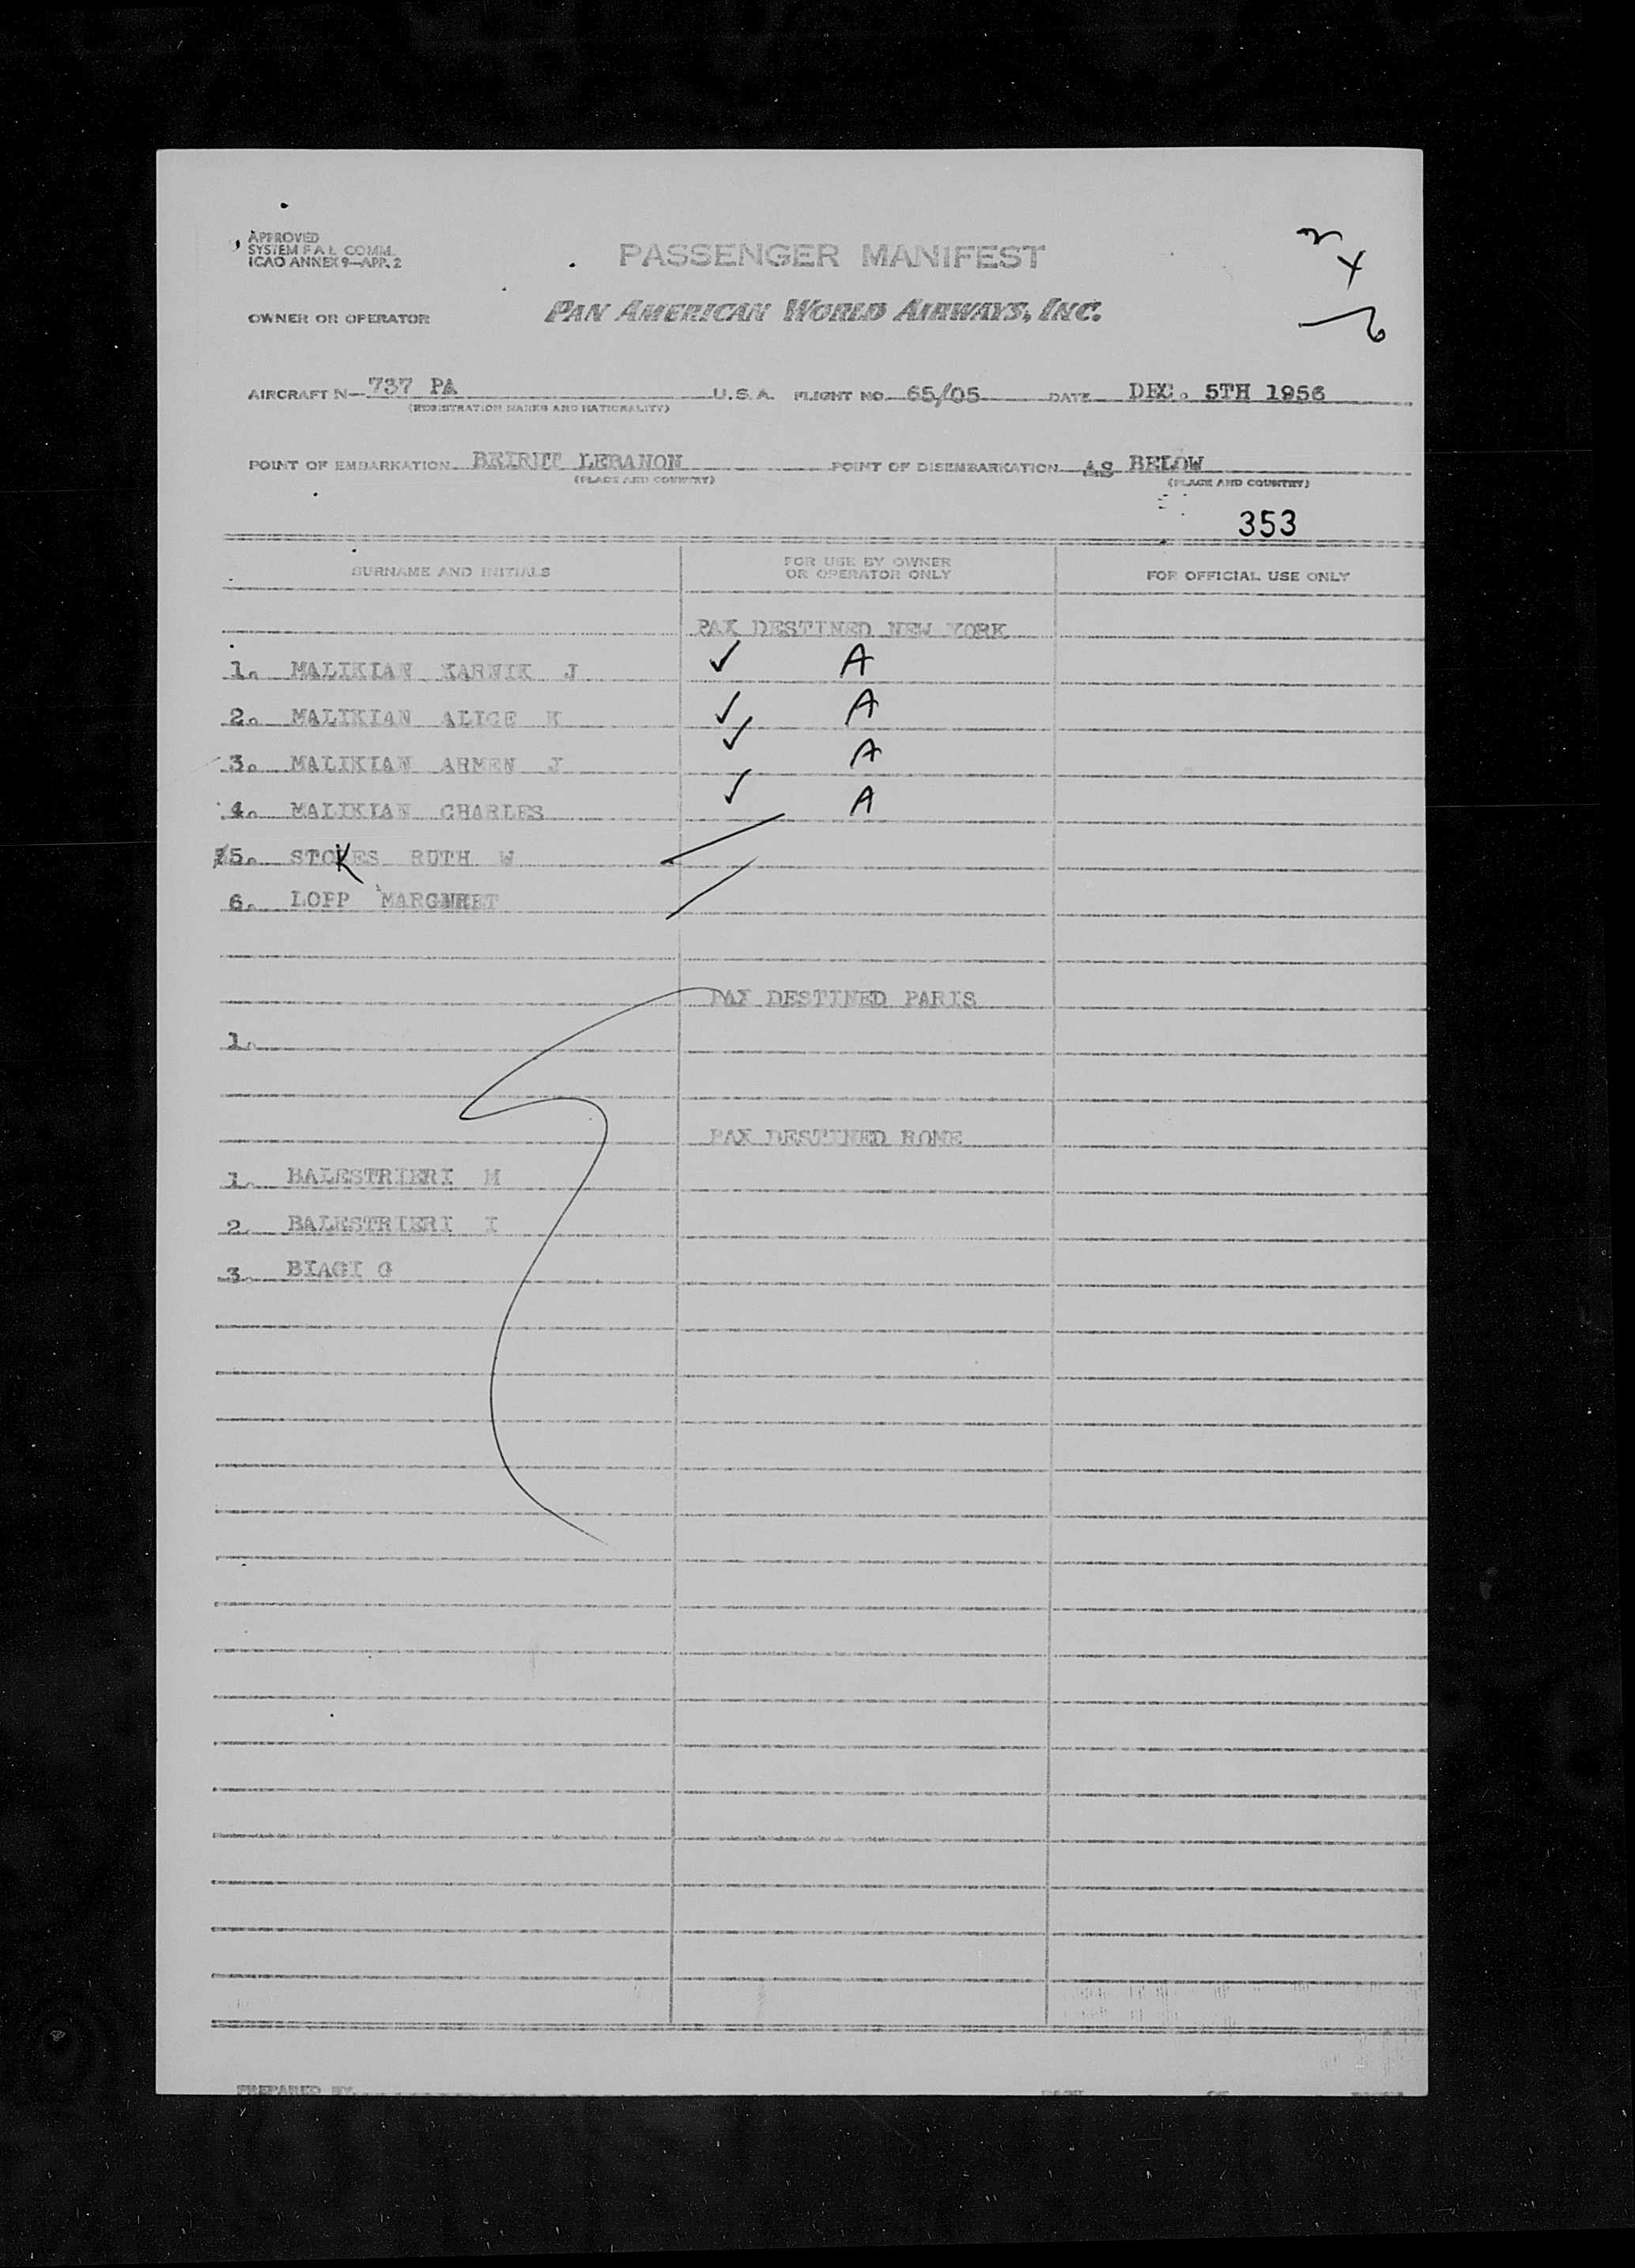 APPROVED
SYSTEM F A L COMM.
ICAO ANNEX 9—APP. 2
PASSENGER MANIFEST
OWNER OR OPERATOR PAN AMERICAN WORLD AIRWAYS, INC.
AIRCRAFT N— 737 PA U.S.A. FLIGHT NO. 65/05 DATE DEC. 5TH 1956
(REGISTRATION MARKS AND NATIONALITY)
POINT OF EMBARKATION LEBANON POINT OF DISEMBARKATION AS BELOW
(PLACE AND COUNTRY) (PLACE AND COUNTRY)
353
SURNAME AND INITIALS FOR USE BY OWNER OR OPERATOR ONLY FOR OFFICIAL USE ONLY
PAX DESTINED NEW YORK
1. MALIKIAN KARNIK J ✓ A
2. MALIKIAN ALICE K ✓ A
3. MALIKIAN ARMEN J ✓ A
4. MALIKIAN CHARLES ✓ A
5. STOKES RUTH W
6. LOPP
PAX DESTINED PARIS
1.
PAX DESTINED ROME
1. BALESTRIERI M
2. BALESTRIERI I
3. BIAGI G
PREPARED BY